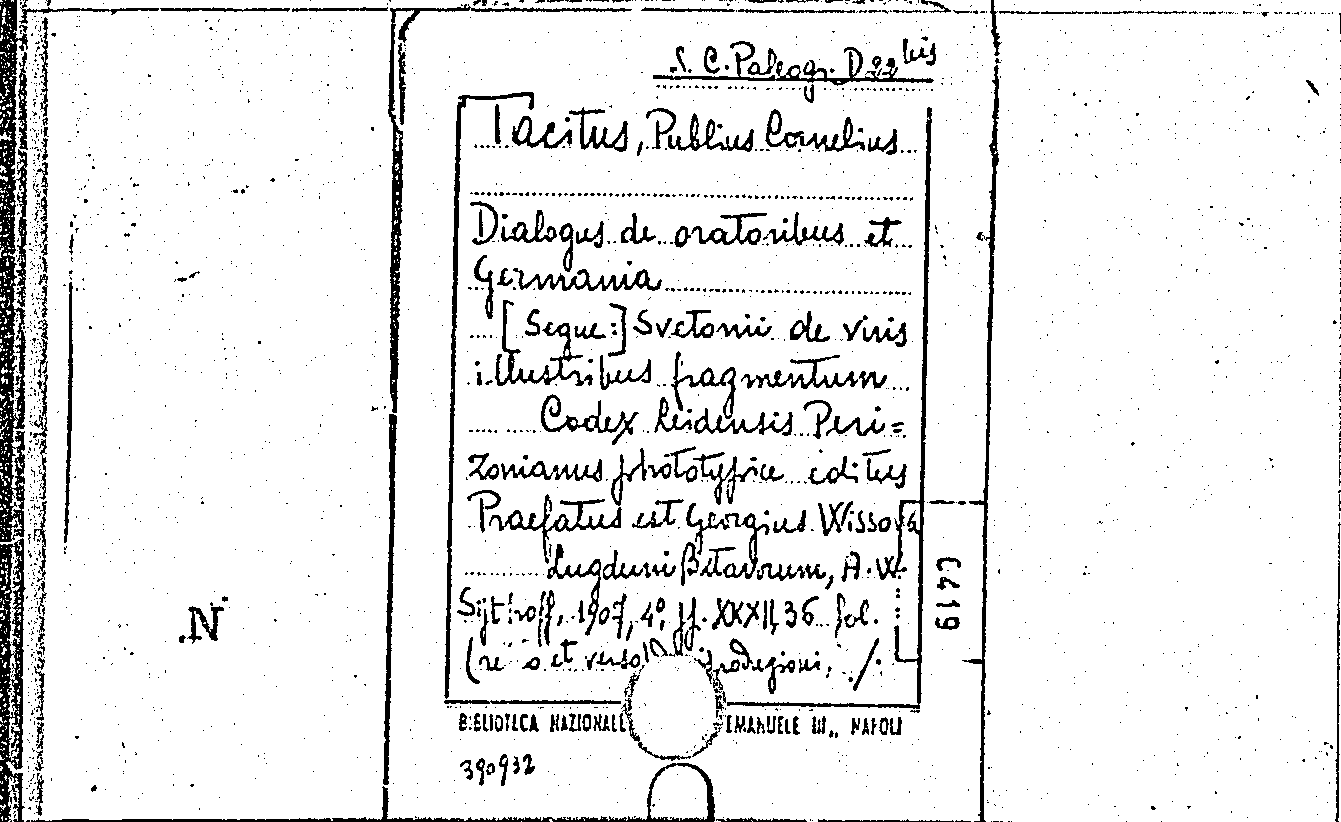 S. C. Paleogr. D 22 bis
Tacitus, Publius Cornelius
Dialogus de oratoribus et
Germania
[Segue:] Svetonii de viris
illustribus fragmentum
Codex Leidensis Peri=
zonianus phototypice editus
Praefatus est Georgius Wissowa
Lugduni Batavorum, A. W.
Sijthoff, 1907, 4°, ff. XXXII, 36 fol.
et verso
C419
.N
BIBLIOTECA NAZIONALE EMANUELE III., NAPOLI
390932